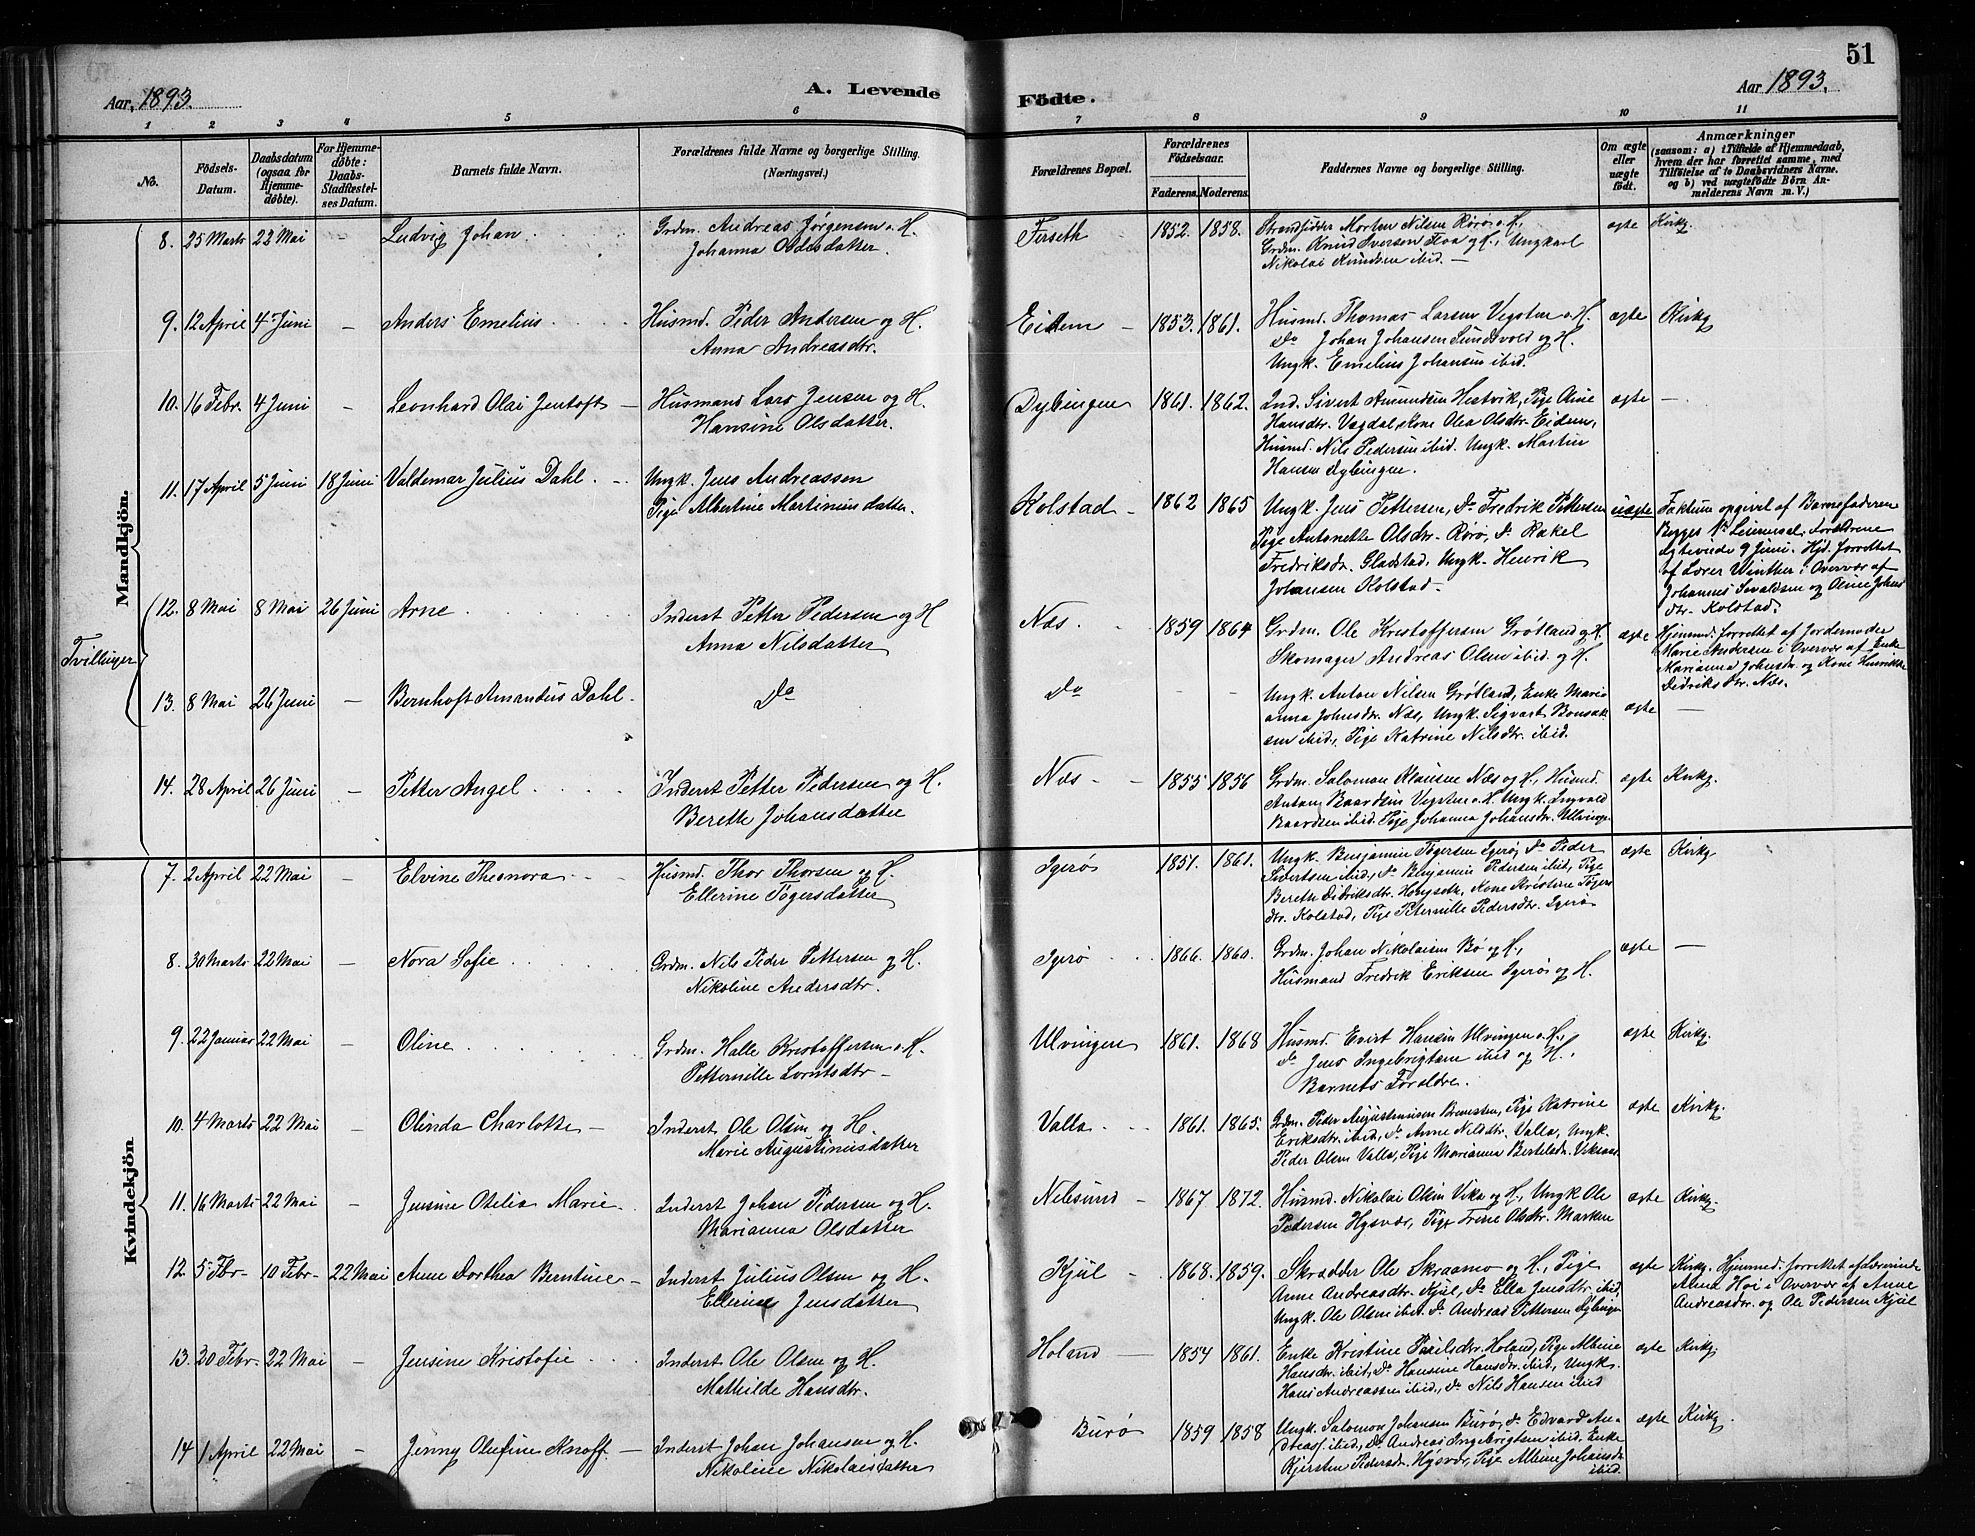 51
Aar, 1893. A. Levende Födte. Aar 1893.
1 2 3 4 5 6 7 8 9 10 11
No. Födsels-Datum. Daabsdatum (ogsaa for Hjemmedöbte). For Hjemmedöbte: Daabs-Stadfæstelses Datum. Barnets fulde Navn. Forældrenes fulde Navne og borgerlige Stilling. (Næringsvei.) Forældrenes Bopæl. Forældrenes Födselsaar. Faderens. Moderens. Faddernes Navne og borgerlige Stilling. Om ægte eller uægte födt. Anmærkninger (saasom: a) i Tilfælde af Hjemmedaab, hvem der har forrettet samme, med Tilföielse af to Daabsvidners Navne. og b) ved uægtefödte Börn Anmelderens Navn m. V.)
Mandkjön.
8. 25 Marts 22 Mai - Ludvig Johan Grdm. Andreas Jørgensen o. H. Ferseth 1852. 1858. Strandsidder Morten Nilsen Rörö o. H., ægte Kirkg.
Johanna Olsdatter. Grdm. Knud Iversen Floa og H., Ungkarl
Nikolai Knudsen ibid. -
9. 12 April 4 Juni - Anders Emelius. Husmd. Peder Andersen og H. Eidem - 1853. 1861. Husmd. Thomas Larsen Vegsten o. H. ægte Kirkg
Anna Andreasdtr. Do Johan Johansen Sundsvold og H.
Ungk. Emelius Johansen ibid.
10. 16 Febr. 4 Juni - Leonhard Olai Jentoft - Husmand Lars Jensen og H. Dybingen 1861. 1862. Ind. Sivert Amundsen Hestvik, Pige Oline ægte -
Hansine Olsdatter. Hansdtr. Vagdal, Kone Olea Olsdtr. Eidem,
Husmd. Nils Pedersen ibid. Ungk. Martin
Hansen Dybingen.
11. 17 April 5 Juni 18 Juni Valdemar Julius Dahl. - Ungk. Jens Andreassen Kolstad - 1862 1865 Ungk. Jens Pettersen, Do Fredrik Pettersen uægte Faktum opgivet af Barnefaderen
Pige Albertine Martinusdatter. Pige Antonette Olsdtr. Rörö, Do Rakel
Fredriksdr. Gladstad, Ungk. Henrik ægteviede 9 Juni. Hjd. forrettet
Johansen Kolstad. af Lærer Winther i Overvær af
Johannes Sivaldsen og Oline Johans
dtr. Kolstad.
Tvillinger
12. 8 Mai 8 Mai 26 Juni Arne Inderst Petter Pedersen og H Næs. 1859 1864 Grdm. Ole Kristoffersen Grötland og H. ægte Hjemmd. forrettet af Jordemoder
Anna Nilsdatter Skomager Andreas Olsen ibid. og H. Marie Andersen i Overvær af Enke
Marianna Johnsdtr. og Kone Henrikke
Didriksdtr. Næs.
13. 8 Mai 26 Juni - Bernhoft Amandus Dahl. Do Do - - Ungk. Anton Nilsen Grötland, Enke Mari- ægte -
anna Johnsdtr. Næs, Ungk. Sigvart Bonsak
sen ibid., Pige Katrine Nilsdtr. ibid.
14. 28 April 26 Juni - Petter Angel Inderst Petter Pedersen og H. Næs - 1855 1856 Grdm. Salomon Klausen Næs og H., Husmd. ægte Kirkg.
Berethe Johansdatter Anton Baardsen Vegsten o. H. Ungk. Ingvald
Baardsen ibid. Pige Johanna Johansdtr. Ulvingen
Kvindekjön
7. 2 April 22 Mai - Elvine Theonora Husmd. Thor Thorsen og H. Igerö 1851. 1861. Ungk. Benjamin Tögersen Igerö, Do Peder ægte Kirkg
Ellerine Tögersdatter Sivertsen ibid., Do Benjamin Pedersen ibid., Pige
Berethe Didriksdtr. Hongseth, Kone Kristine Tögers
dtr. Kolstad, Pige Peternille Pedersdtr. Igerö
8. 30 Marts 22 Mai - Nora Sofie Grdm. Nils Peder Pettersen og H. Igerö 1866. 1860. Grdm. Johan Nikolaisen Bö og H., ægte -
Nikoline Andersdtr. Husmand Fredrik Eriksen Igerö og H.
9. 22 Januar 22 Mai - Oline Grdm. Halle Kristoffersen o. H. Ulvingen 1861. 1868 Husmd. Evert Hansen Ulvingen o. H., ægte Kirkg.
Petternille Lorntsdtr - Do Jens Ingebrigtsen ibid og H.,
Barnets Forældre.
10. 4 Marts 22 Mai - Olinda Charlotte - Inderst Ole Olsen og H. Valla 1861. 1865. Grdm. Peder Augustinusen Bremsten, Pige Katrine ægte Kirkg.
Marie Augustinusdatter Eriksdtr. ibid, Do Anne Nilsdtr. Valla, Ungk.
Peder Olsen Valla, Pige Marianna Bertelsdtr.
11. 16 Marts 22 Mai - Jensine Otelia Marie Inderst Johan Pedersen og H. Nilsund - 1867 1872. Husmd. Nikolai Olsen Vika og H., Ungk Ole ægte Kirkg.
Marianna Olsdatter Pedersen Hysvær, Pige Trine Olsdtr. Marken
12. 5 Fbr- 10 Febr- 22 Mai Anne Dorthea Berntine - Inderst Julius Olsen og H. Kjul - 1868. 1859. Skrædder Ole Skraamo og H., Pige ægte Kirkg. Hjemmd. forrettet af Lærerinde
Ellerine Jensdatter Anne Andreasdtr. Kjul, Do Ella Jensdtr. ibid. Anna Hoi i Overvær af Anne
Ungk. Ole Olsen ibid. Do Andreas Pettersen Dybingen Andreasdtr. og Ole Pedersen Kjul
13. 30 Febr. 22 Mai - Jensine Kristofie Inderst Ole Olsen og H. Holand - 1854 1861. Enke Kristine Poulsdtr. Holand, Pige Albine ægte Kirkg.
Mathilde Hansdtr. Hansdtr. ibid., Do Hansine Hansdtr. ibid, Ungk.
Hans Andreassen ibid., Do Nils Hansen ibid
14 1 April 22 Mai - Jenny Olufine Knoff. - Inderst Johan Johansen og H. Burö 1859 1858 Ungk. Salomon Johansen Burö, Do Edvard An- ægte Kirkg.
Nikoline Nikolaisdatter dreass. ibid., Do Andreas Ingebrigtsen ibid. Enke
Kjersten Pedersdtr. Hysvær, Pige Albine Johansdtr.
ibid.